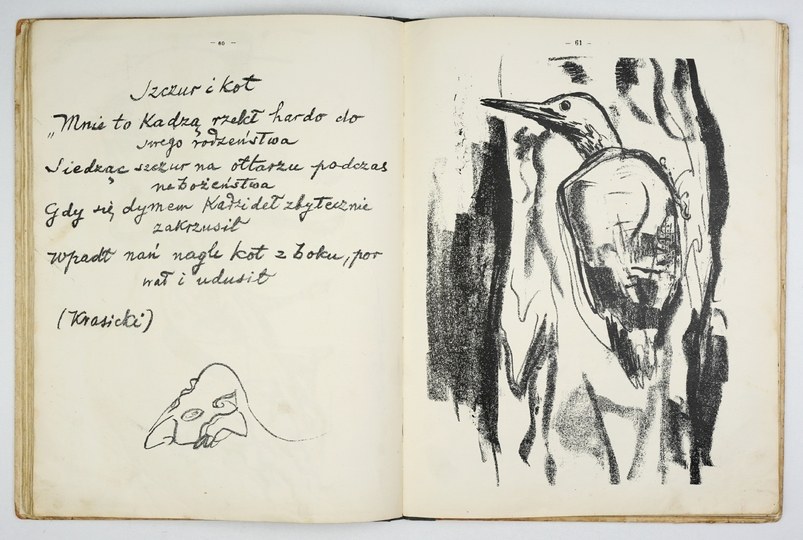 — 60 —
Szczur i kot
„Mnie to Kadzą rzekł hardo do
swego rodzeństwa
Siedząc szczur na ołtarzu podczas
nebożeństwa
Gdy się dymem Kadzideł zbytecznie
zakrzusił
Wpadł nań nagle kot z boku, por
wał i udusił
(Krasicki)
— 61 —